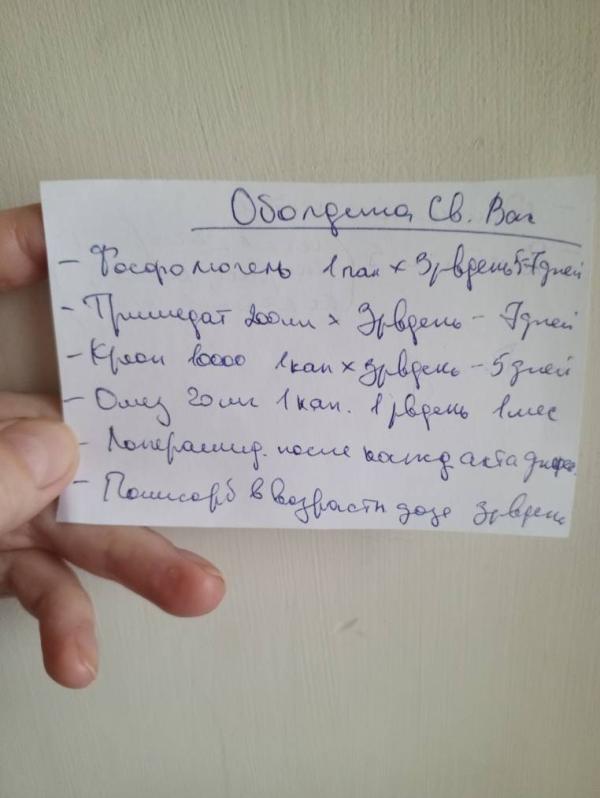 Оболдина Св. Вал
- Фосфалюгель 1 пак х 3рвдень 5-7дней
- Тримедат 200мг х 3рвдень - 7дней
- Креон 10000 1кап х 3рвдень - 5 дней
- Омез 20 мг 1 кап. 1 рвдень 1 мес
- Лоперамид. после кажд акта
- Полисорб в возрастн дозе 3рвдень